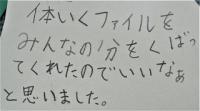 1本いくファイルを
みんなの分をくばっ
てくれたのでいいなぁ
と思いました。